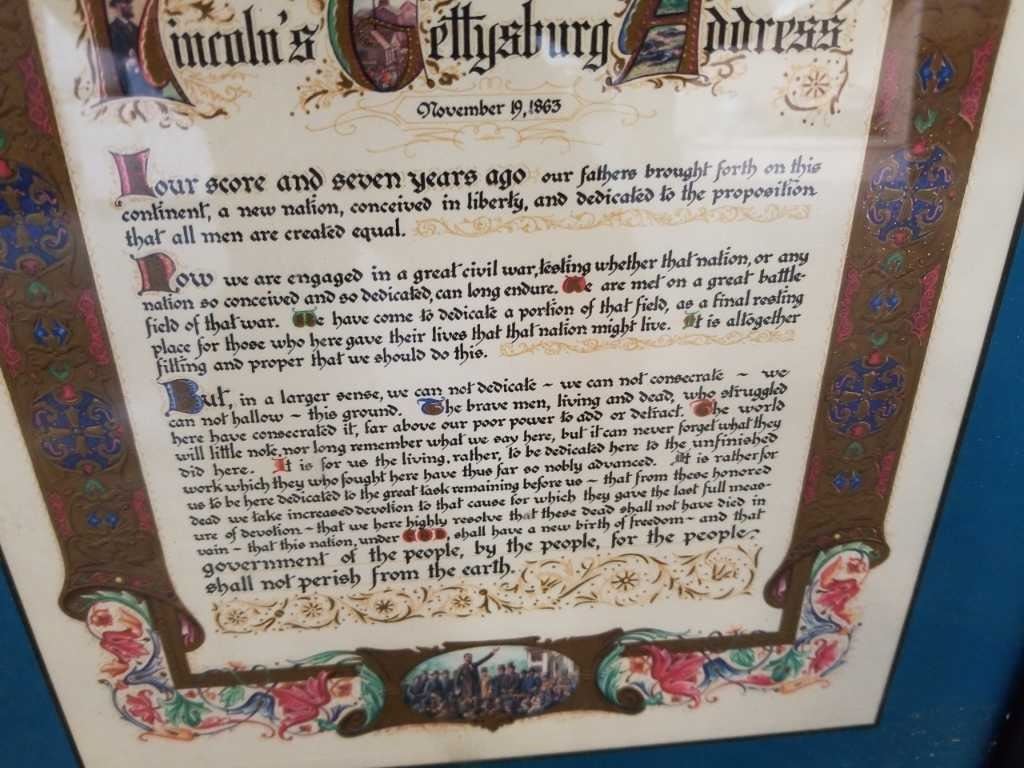 Lincoln's Gettysburg Address
November 19, 1863
Four score and seven years ago our fathers brought forth on this
continent, a new nation, conceived in liberty, and dedicated to the proposition
that all men are created equal.
Now we are engaged in a great civil war, testing whether that nation, or any
nation so conceived and so dedicated, can long endure. We are met on a great battle-
field of that war. We have come to dedicate a portion of that field, as a final resting
place for those who here gave their lives that that nation might live. It is altogether
fitting and proper that we should do this.
But, in a larger sense, we can not dedicate ~ we can not consecrate ~ we
can not hallow ~ this ground. The brave men, living and dead, who struggled
here have consecrated it, far above our poor power to add or detract. The world
will little note, nor long remember what we say here, but it can never forget what they
did here. It is for us the living, rather, to be dedicated here to the unfinished
work which they who fought here have thus far so nobly advanced. It is rather for
us to be here dedicated to the great task remaining before us ~ that from these honored
dead we take increased devotion to that cause for which they gave the last full meas-
ure of devotion ~ that we here highly resolve that these dead shall not have died in
vain ~ that this nation, under GOD, shall have a new birth of freedom ~ and that
government of the people, by the people, for the people,
shall not perish from the earth.